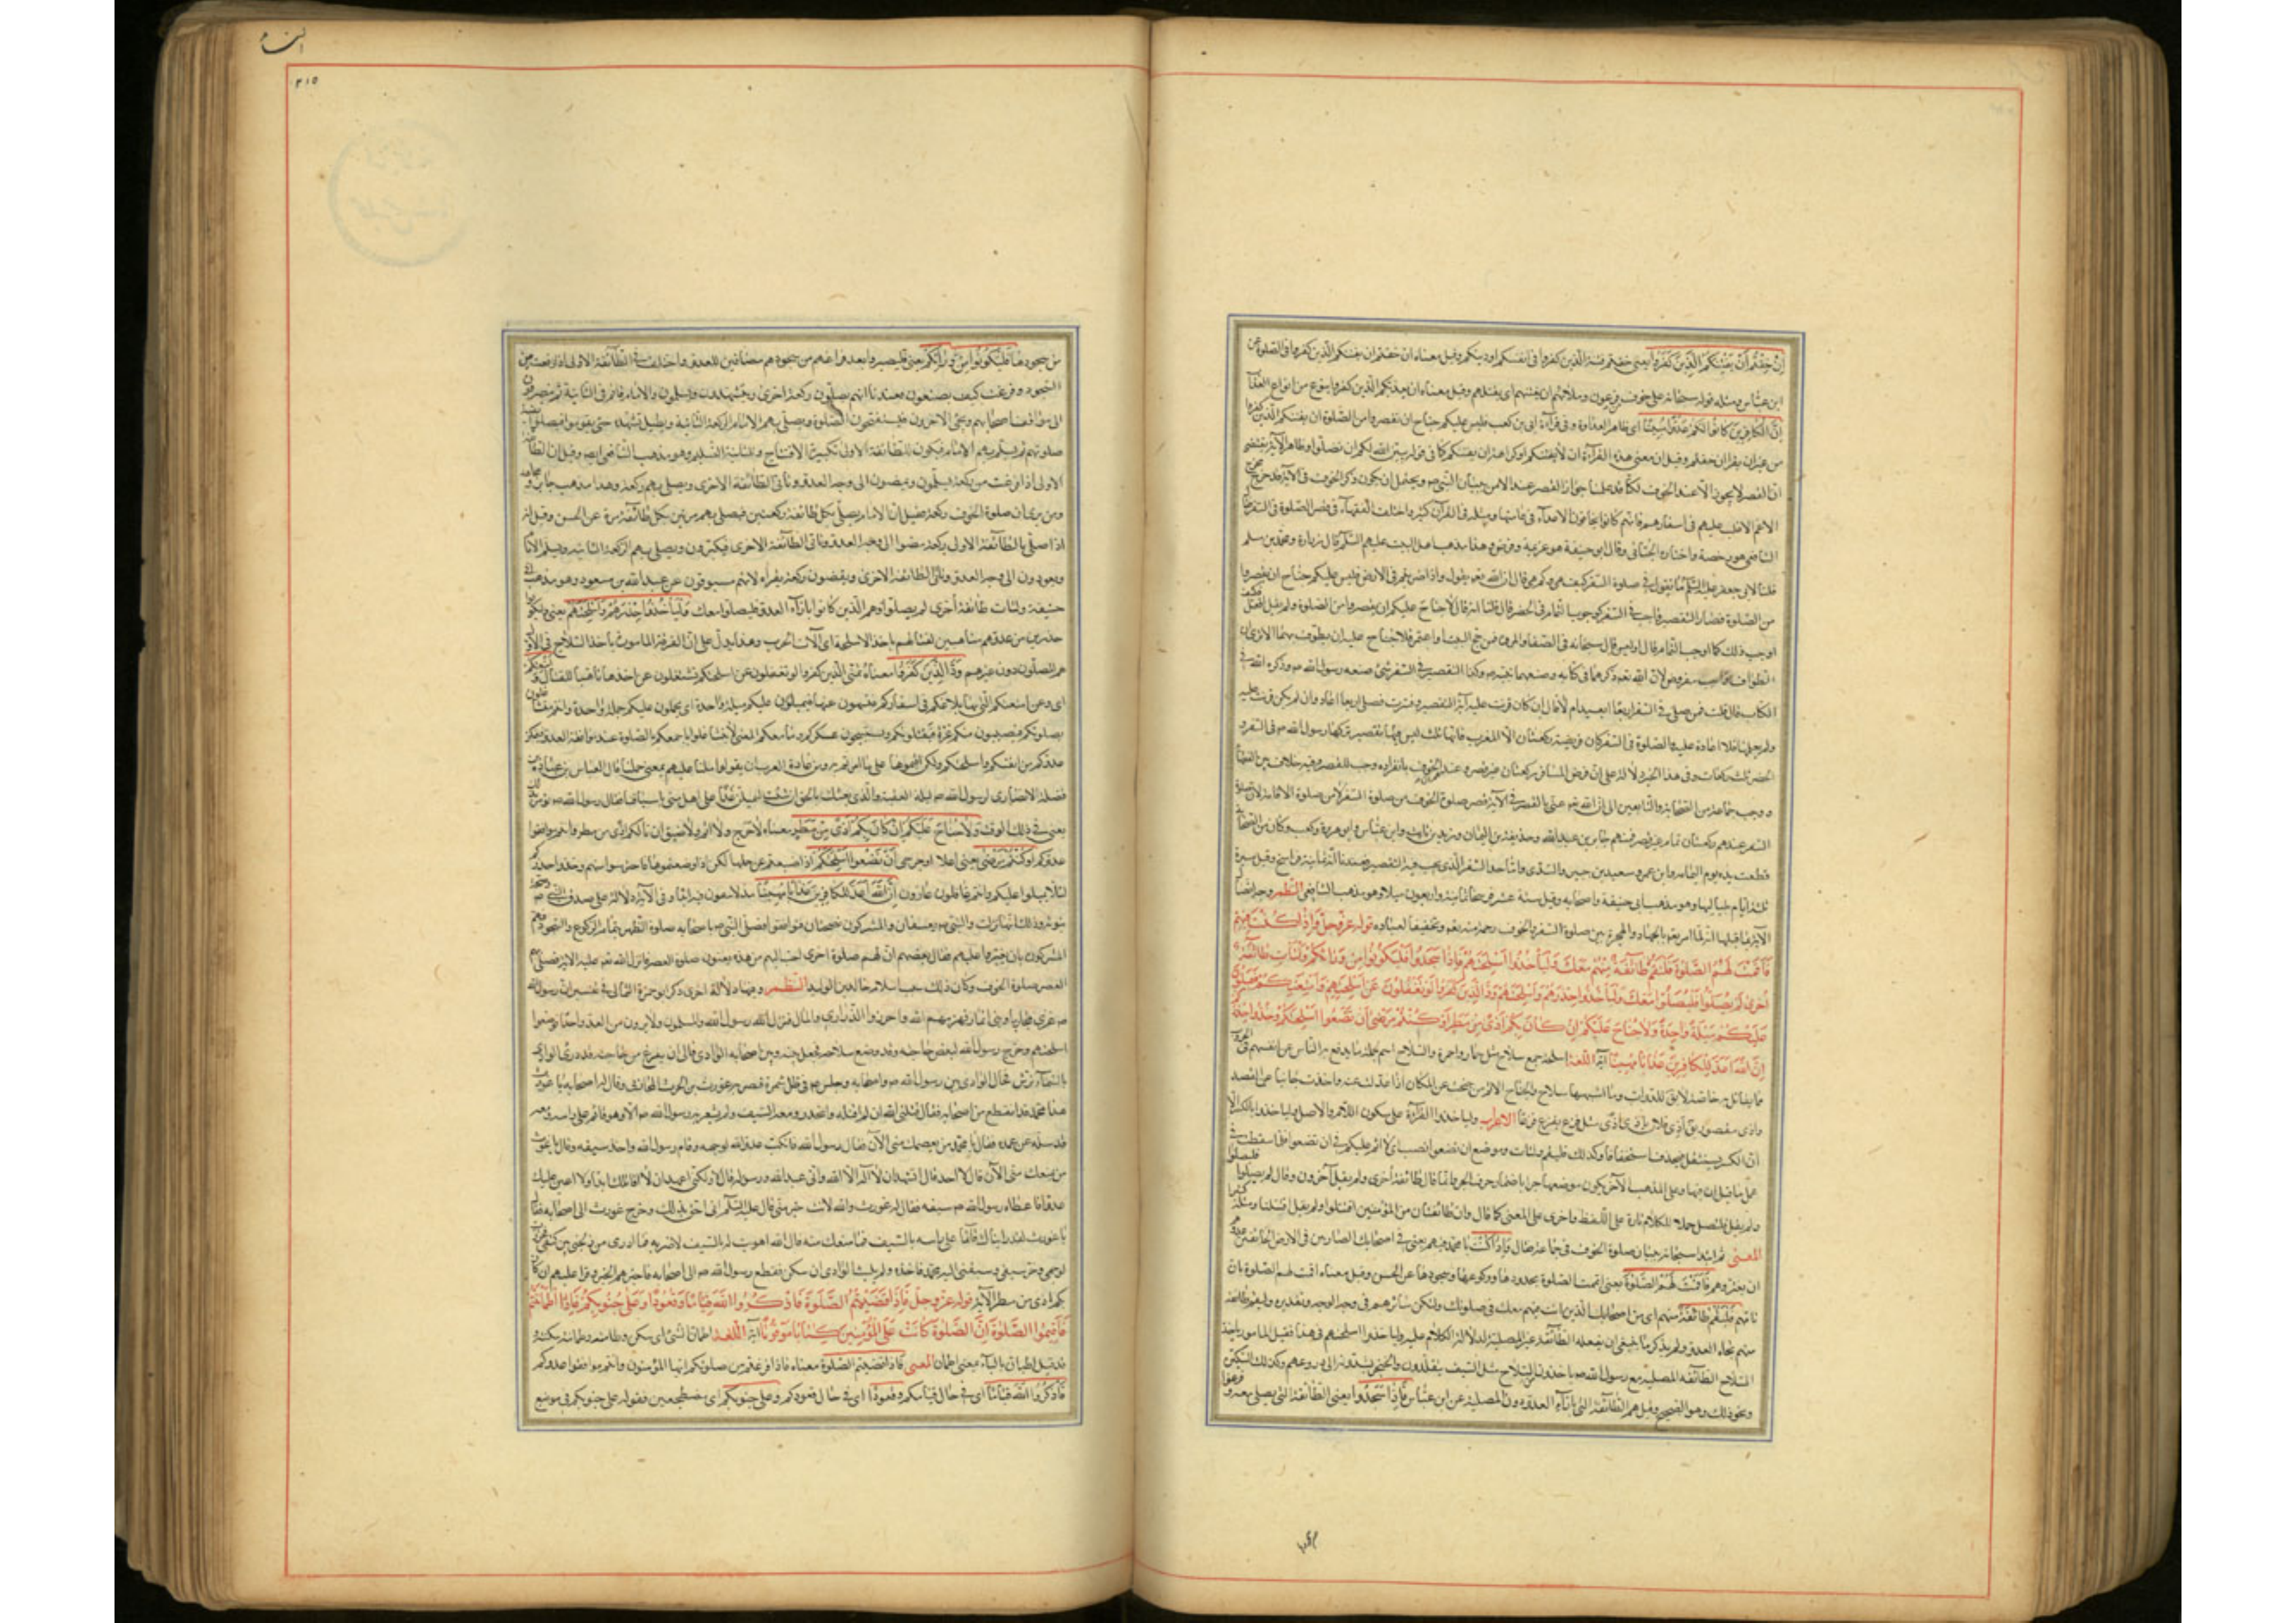 إن خفتم أن يفتنكم الذين كفروا يعني خفتم فتنة الذين كفروا في أنفسكم أو دينكم وقيل معناه إن خفتم أن يفتنكم الذين كفروا في الصلوة عن
ابن عباس ومثله قوله سبحانه على خوف من فرعون وملائهم أن يفتنهم أي يقتلهم وقيل معناه أن يعذبكم الذين كفروا بنوع من أنواع العذاب
إن الكافرين كانوا لكم عدوا مبينا أي ظاهر العداوة وفي قراءة أبي بن كعب فليس عليكم جناح أن تقصروا من الصلوة أن يفتنكم الذين كفروا
من غير أن يقرأ إن خفتم وقيل إن معنى هذه القراءة أن لا يفتنكم أو كراهة أن يفتنكم كما في قوله يبين الله لكم أن تضلوا وظاهر الآية يقتضي
أن القصر لا يجوز إلا عند الخوف لكنا قد علمنا جواز القصر عند الأمن ببيان النبي ص ويحتمل أن يكون ذكر الخوف في الآية قد خرج مخرج
الأعم الأغلب عليهم في أسفارهم فإنهم كانوا يخافون الأعداء في عامتها ومثله في القرآن كثير واختلف الفقهاء في قصر الصلوة في السفر فقال
الشافعي هو رخصة واختاره الجبائي وقال أبو حنيفة هو عزيمة وفرض وهذا مذهب أهل البيت عليهم السلم قال زرارة ومحمد بن مسلم
قلنا لأبي جعفر عليه السلم ما تقول في صلوة السفر كيف هي وكم هي قال إن الله تعه يقول وإذا ضربتم في الأرض فليس عليكم جناح أن تقصروا
من الصلوة فصار التقصير واجبا في السفر كوجوب التمام في الحضر قال قلنا إنه قال لا جناح عليكم أن تقصروا من الصلوة ولم يقل افعل فكيف
أوجب ذلك كما أوجب التمام قال أوليس قال سبحانه في الصفا والمروة فمن حج البيت أو اعتمر فلا جناح عليه أن يطوف بهما ألا ترى أن
الطواف واجب مفروض لأن الله تعه ذكرهما في كتابه وصنعهما نبيه ص وكذا التقصير في السفر شيء صنعه رسول الله ص وذكره الله في
الكتاب قال قلت فمن صلى في السفر أربعا أيعيد أم لا قال إن كان قرئت عليه آية التقصير وفسرت فصلى أربعا أعاد وإن لم يكن قرئت عليه
ولم يعلمها فلا إعادة عليه والصلوة في السفر كان فريضة ركعتان إلا المغرب فإنها ثلث ليس فيها تقصير تركها رسول الله ص في السفر و
الحضر ثلث ركعات وفي هذا الخبر دلالة على أن فرض المسافر ركعتان غير قصر وعند الخوف بانفراده وجب القصر وفيه خلاف بين الفقهاء
وذهب جماعة من الصحابة والتابعين إلى أن الله تعه عنى بالقصر في الآية قصر صلوة الخوف من صلوة السفر لا من صلوة الإقامة لأن صلوة
السفر عندهم ركعتان تمام غير قصر فمنهم جابر بن عبد الله وحذيفة بن اليمان وزيد بن ثابت وابن عباس وأبو هريرة وكعب وكان من الصحابة
قطعت يده يوم اليمامة وابن عمر وسعيد بن جبير والسدي وأما حد السفر الذي يجب فيه التقصير فعندنا ثمانية فراسخ وقيل مسيرة
ثلثة أيام بلياليها وهو مذهب أبي حنيفة وأصحابه وقيل ستة عشر فرسخا ثمانية وأربعون ميلا وهو مذهب الشافعي النظم وجه اتصال
الآية بما قبلها أنه لما أمر تعه بالجهاد والهجرة بين صلوة السفر والخوف رحمة منه تعه وتخفيفا لعباده قوله عز وجل وإذا كنت فيهم
فأقمت لهم الصلوة فلتقم طائفة منهم معك وليأخذوا أسلحتهم فإذا سجدوا فليكونوا من ورائكم ولتأت طائفة
أخرى لم يصلوا فليصلوا معك وليأخذوا حذرهم وأسلحتهم ود الذين كفروا لو تغفلون عن أسلحتكم وأمتعتكم فيميلون
عليكم ميلة واحدة ولا جناح عليكم إن كان بكم أذى من مطر أو كنتم مرضى أن تضعوا أسلحتكم وخذوا حذركم
إن الله أعد للكافرين عذابا مهينا آية اللغة أسلحة جمع سلاح مثل حمار وأحمرة والسلاح اسم لجملة ما يدفع به الناس عن أنفسهم في الحروب
مما يقاتل به خاصة لا يقال للدواب وما أشبهها سلاح والجناح الإثم من جنحت عن المكان إذا عدلت عنه وأخذت جانبا عن القصد
وأذى مقصور يقال أذي فلان يأذى أذى مثل فزع يفزع فزعا الإعراب وليأخذوا القراءة على سكون اللام والأصل وليأخذوا بالكسر إلا
أن الكسر يستثقل فيحذف استخفافا وكذلك فلتقم ولتأت وموضع أن تضعوا نصب أي لا إثم عليكم في أن تضعوا فلما سقطت في
عمل ما قبل أن فيها وعلى المذهب الآخر يكون موضعها جرا بإضمار حرف الجر وإنما قال طائفة أخرى ولم يقل آخرون وقال لم يصلوا فليصلوا
ولم يقل فلتصل حملا للكلام تارة على اللفظ وأخرى على المعنى كما قال وإن طائفتان من المؤمنين اقتتلوا ولم يقل اقتتلتا ومثله كثير
المعنى ثم ابتدأ سبحانه ببيان صلوة الخوف في جماعة فقال وإذا كنت يا محمد فيهم يعني في أصحابك الضاربين في الأرض الخائفين عدوهم
أن يغزوهم فأقمت لهم الصلوة يعني أتممت الصلوة بحدودها وركوعها وسجودها عن الحسن وقيل معناه أقمت لهم الصلوة بأن
تؤمهم فلتقم طائفة منهم أي من أصحابك الذين أنت فيهم معك في صلوتك وليكن سائرهم في وجه العدو وتقديره ولتقم طائفة
منهم تجاه العدو ولم يذكر ما ينبغي أن يفعله الطائفة غير المصلية لدلالة الكلام عليه وليأخذوا أسلحتهم في هذا فقيل المأمور بأخذ
السلاح الطائفة المصلية مع رسول الله ص يأخذون السلاح مثل السيف يتقلدون به والخنجر يشدونه إلى دروعهم وكذلك السكين
ونحو ذلك وهو الصحيح وقيل هم الطائفة التي بإزاء العدو دون المصلية عن ابن عباس فإذا سجدوا يعني الطائفة التي يصلي معه وفرغوا
النساء
٣١٥
من سجودها فليكونوا من ورائكم يعني فليصيروا بعد فراغهم من سجودهم مصافين للعدو واختلف في الطائفة الأولى إذا رفعت من
السجود وفرغت كيف يصنعون فعندنا أنهم يصلون ركعة أخرى ويتشهدون ويسلمون والإمام قائم في الثانية ثم ينصرفون
إلى مواقف أصحابهم ويجيء الآخرون فيستفتحون الصلوة ويصلي بهم الإمام الركعة الثانية ويطيل تشهده حتى يقوموا فيصلوا بقية
صلوتهم ثم يسلم بهم الإمام فيكون للطائفة الأولى تكبيرة الافتتاح وللثانية التسليم وهو مذهب الشافعي أيضا وقيل إن الطائفة
الأولى إذا فرغت من ركعة يسلمون ويمضون إلى وجه العدو وتأتي الطائفة الأخرى ويصلي بهم ركعة وهذا مذهب جابر ومجاهد
ومن يرى أن صلوة الخوف ركعة وقيل إن الإمام يصلي بكل طائفة ركعتين فيصلي بهم مرتين بكل طائفة مرة عن الحسن وقيل إنه
إذا صلى بالطائفة الأولى ركعة مضوا إلى وجه العدو وتأتي الطائفة الأخرى فيكبرون ويصلي بهم الركعة الثانية ويسلم الإمام
ويعودون إلى وجه العدو وتأتي الطائفة الأولى ويقضون ركعة بغير قراءة لأنهم مسبوقون عن عبد الله بن مسعود وهو مذهب أبي
حنيفة ولتأت طائفة أخرى لم يصلوا وهم الذين كانوا بإزاء العدو فليصلوا معك وليأخذوا حذرهم وأسلحتهم يعني وليكونوا
حذرين من عدوهم متأهبين لقتالهم بأخذ الأسلحة أي آلات الحرب وهذا يدل على أن الفرقة المأمورة بأخذ السلاح في الأول
هم المصلون دون غيرهم ود الذين كفروا معناه تمنى الذين كفروا لو تغفلون عن أسلحتكم وتشتغلون عن أخذها تأهبا للقتال وأمتعتكم
أي وعن أمتعتكم التي بها بلاغكم في أسفاركم فتسهون عنها فيميلون عليكم ميلة واحدة أي يحملون عليكم حملة واحدة وأنتم متشاغلون
بصلوتكم فيصيبون منكم غرة فيقتلونكم ويستبيحون عسكركم وما معكم المعنى لا تتشاغلوا بأجمعكم بالصلوة عند موافقة العدو فيمكن
عدوكم من أنفسكم وأسلحتكم ولكن أقيموها على ما أمرتم به ومن عادة العرب أن يقولوا ملنا عليهم بمعنى حملنا قال العباس بن عبادة بن
نضلة الأنصاري لرسول الله ص ليلة العقبة والذي بعثك بالحق إن شئت لنميلن غدا على أهل منى بأسيافنا فقال رسول الله ص لم نؤمر بذلك
يعني في ذلك الوقت ولا جناح عليكم إن كان بكم أذى من مطر معناه لا حرج ولا إثم ولا ضيق إن نالكم أذى من مطر وأنتم مواقفوا
عدوكم أو كنتم مرضى يعني أعلاء أو جرحى أن تضعوا أسلحتكم إذا ضعفتم عن حملها لكن إذا وضعتموها فاحترسوا منهم وخذوا حذركم
لئلا يميلوا عليكم وأنتم غافلون عارون إن الله أعد للكافرين عذابا مهينا مذلا يبقون فيه أبدا وفي الآية دلالة على صدق النبي ص وصحة
نبوته وذلك أنها نزلت والنبي ص بعسفان والمشركون بضجنان فتواقفوا فصلى النبي ص بأصحابه صلوة الظهر بتمام الركوع والسجود فهم
المشركون بأن يغيروا عليهم فقال بعضهم إن لهم صلوة أخرى أحب إليهم من هذه يعنون صلوة العصر فأنزل الله تعه عليه الآية فصلى بهم
العصر صلوة الخوف وكان ذلك سبب إسلام خالد بن الوليد النظم وفيها دلالة أخرى ذكر أبو حمزة الثمالي في تفسيره أن رسول الله
ص غزى محاربا وبني أنمار فهزمهم الله وأحرزوا الذراري والمال فنزل رسول الله والمسلمون ولا يرون من العدو واحدا فوضعوا
أسلحتهم وخرج رسول الله ليقضي حاجته وقد وضع سلاحه فجعل بينه وبين أصحابه الوادي فإلى أن يفرغ من حاجته وقد درأ الوادي
بالسماء ترش فحال الوادي بين رسول الله ص وأصحابه وجلس ص في ظل شجرة فبصر به غورث بن الحرث المحاربي وقال له أصحابه يا غورث
هذا محمد قد انقطع من أصحابه فقال قتلني الله إن لم أقتله وانحدر ومعه السيف ولم يشعر به رسول الله ص إلا وهو قائم على رأسه ومعه
قد سله من غمده فقال يا محمد من يعصمك مني الآن فقال رسول الله فانكب عدو الله لوجهه وقام رسول الله وأخذ سيفه وقال يا غورث
من يمنعك مني الآن قال لا أحد قال أتشهد أن لا إله إلا الله وأني عبد الله ورسوله قال لا ولكني أعهد أن لا أقاتلك أبدا ولا أعين عليك
عدوا فأعطاه رسول الله ص سيفه فقال له غورث والله لأنت خير مني قال عليه السلم إني أحق بذلك وخرج غورث إلى أصحابه فقالوا
يا غورث لقد رأيناك قائما على رأسه بالسيف فما منعك منه قال الله أهويت له بالسيف لأضربه فما أدري من زلجني بين كتفي فخررت
لوجهي وخر سيفي وسبقني إليه محمد فأخذه ولم يلبث الوادي أن سكن فقطع رسول الله ص إلى أصحابه فأخبرهم الخبر وقرأ عليهم إن كان
بكم أذى من مطر الآية قوله عز وجل فإذا قضيتم الصلوة فاذكروا الله قياما وقعودا وعلى جنوبكم فإذا اطمأننتم
فأقيموا الصلوة إن الصلوة كانت على المؤمنين كتابا موقوتا آية اللغة اطمأن الشيء أي سكن وطأمنته وطمأنته سكنته و
قد قيل اطبأن بالباء بمعنى اطمأن المعنى فإذا قضيتم الصلوة معناه فإذا فرغتم من صلوتكم أيها المؤمنون وأنتم مواقفوا عدوكم
فاذكروا الله قياما أي في حال قيامكم وقعودا أي في حال قعودكم وعلى جنوبكم أي مضطجعين فقوله على جنوبكم في موضع